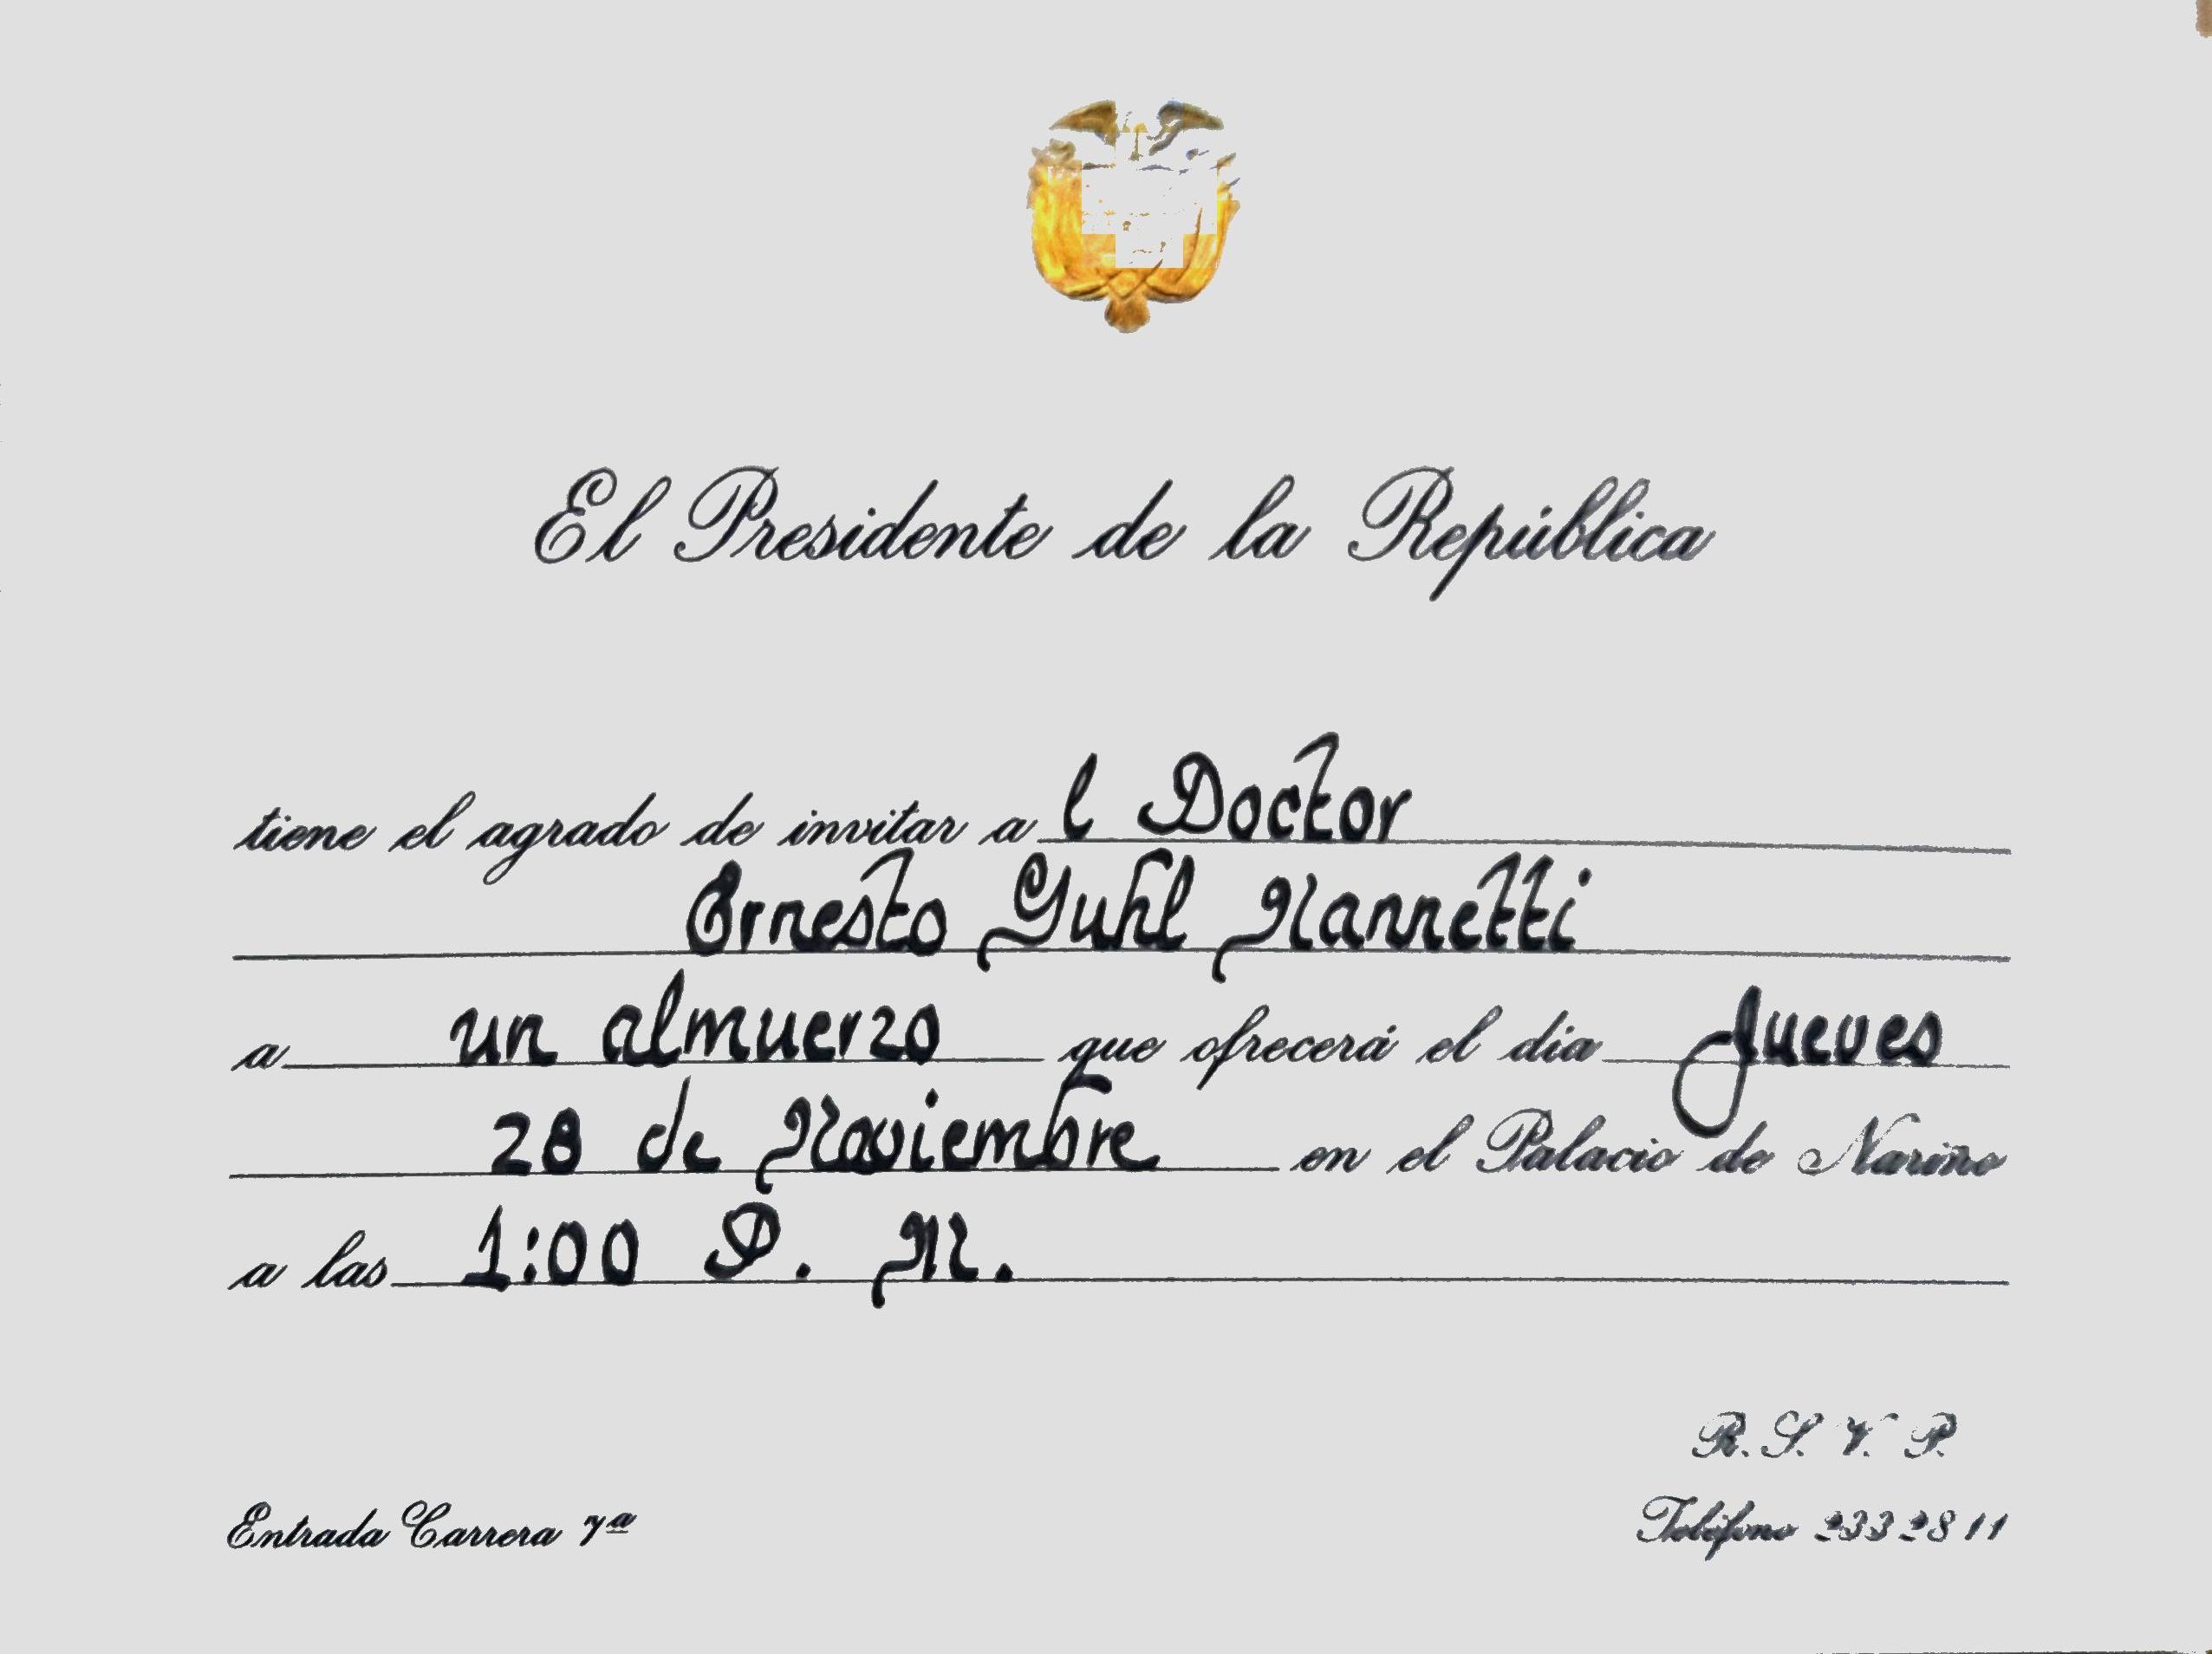 El Presidente de la República
tiene el agrado de invitar a l Doctor
Ernesto Guhl Nannetti
a un almuerzo que ofrecerá el dia Jueves
28 de Noviembre en el Palacio de Nariño
a las 1:00 P. M.
R. S. V. P.
Entrada Carrera 7ª Teléfono 2332811